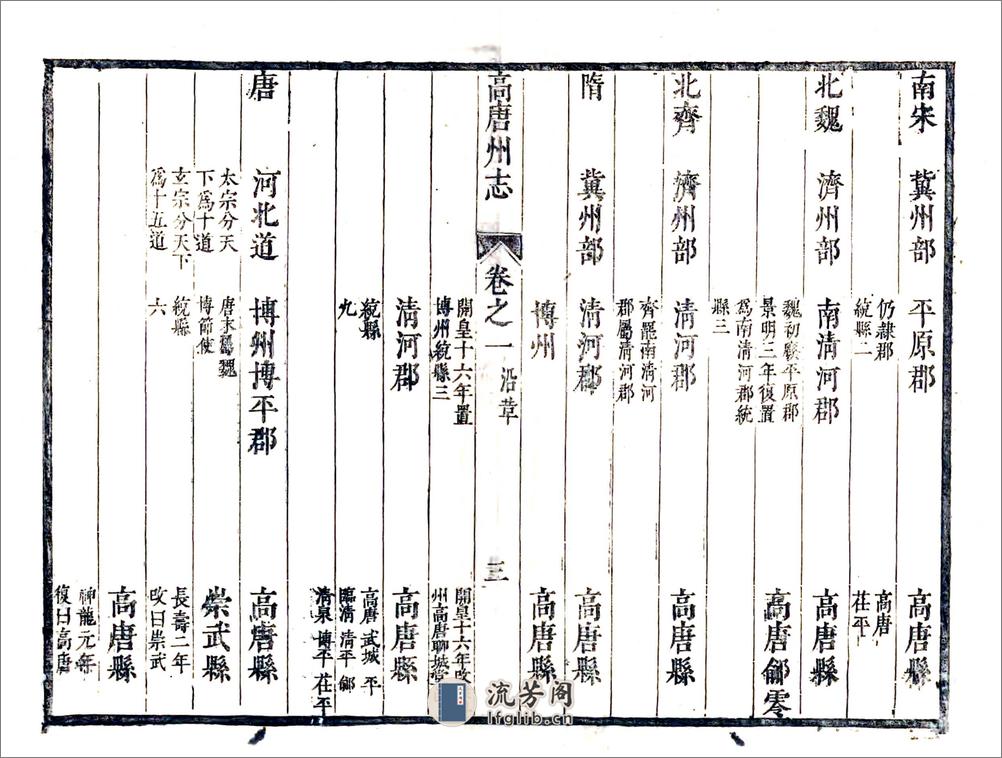 南宋　冀州部　平原郡　高唐縣
仍隸郡　高唐
統縣二　茌平
北魏　濟州部　南清河郡　高唐縣
魏初廢平原郡　高唐鄃零
景明三年復置
爲南清河郡統
縣三
北齊　濟州部　清河郡　高唐縣
齊罷南清河
郡屬清河郡
隋　冀州部　清河郡　高唐縣
博州　高唐縣
高唐州志　卷之一　沿革　三
開皇十六年置　開皇十六年改
博州統縣三　州高唐聊城
清河郡　高唐縣
統縣　高唐　武城　平
九　臨清　清平　鄃
清泉　博平　茌平
唐　河北道　博州博平郡　高唐縣
太宗分天　唐末爲魏　崇武縣
下爲十道　博節使
玄宗分天下　統縣　長壽二年
爲十五道　六　改曰崇武
高唐縣
神龍元年
復曰高唐
流芳阁
lfglib.cn